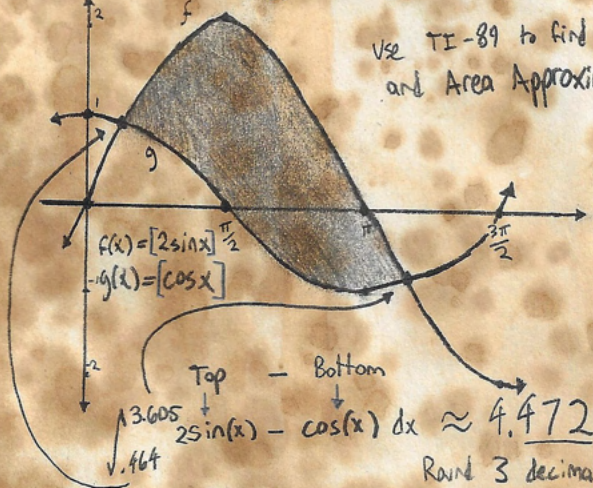 2
f
Use TI-89 to find
and Area Approxi
1
g
π/2
π
3π/2
f(x)=[2sinx]
g(x)=[cosx]
-1
-2
Top - Bottom
∫ 3.605 .464 2sin(x) - cos(x) dx ≈ 4.472
Round 3 decima